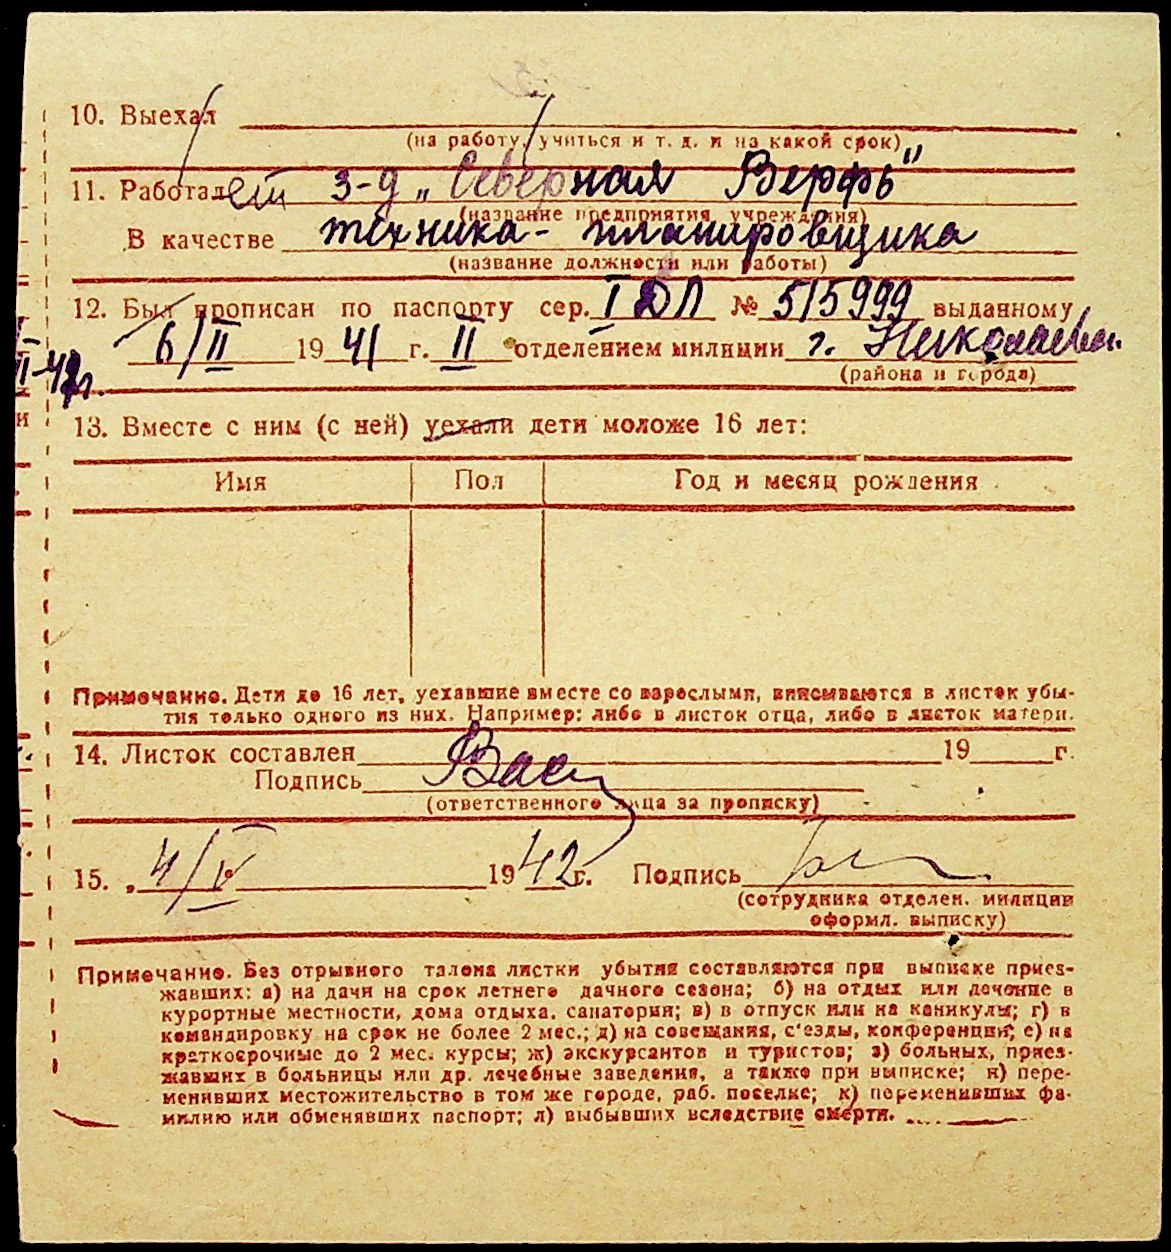 10. Выехал
(на работу, учиться и т. д. и на какой срок)
11. Работает з-д „Северная Верфь"
(название предприятия, учреждения)
В качестве техника-планировщика
(название должности или работы)
12. Был прописан по паспорту сер. I ДЛ № 515999 выданному
6/II 1941 г. II отделением милиции г. Николаева
(района и города)
II-42г.
13. Вместе с ним (с ней) уехали дети моложе 16 лет:
Имя Пол Год и месяц рождения
Примечание. Дети до 16 лет, уехавшие вместе со взрослыми, вписываются в листок убы-
тия только одного из них. Например: либо в листок отца, либо в листок матери.
14. Листок составлен 19 г.
Подпись Вас
(ответственного лица за прописку)
15. „4/V 1942 г. Подпись
(сотрудника отделен. милиции
оформл. выписку)
Примечание. Без отрывного талона листки убытия составляются при выписке приез-
жавших: а) на дачи на срок летнего дачного сезона; б) на отдых или лечение в
курортные местности, дома отдыха, санатории; в) в отпуск или на каникулы; г) в
командировку на срок не более 2 мес.; д) на совещания, с'езды, конференции; е) на
краткосрочные до 2 мес. курсы; ж) экскурсантов и туристов; з) больных, приез-
жавших в больницы или др. лечебные заведения, а также при выписке; и) пере-
менивших местожительство в том же городе, раб. поселке; к) переменивших фа-
милию или обменявших паспорт; л) выбывших вследствие смерти.